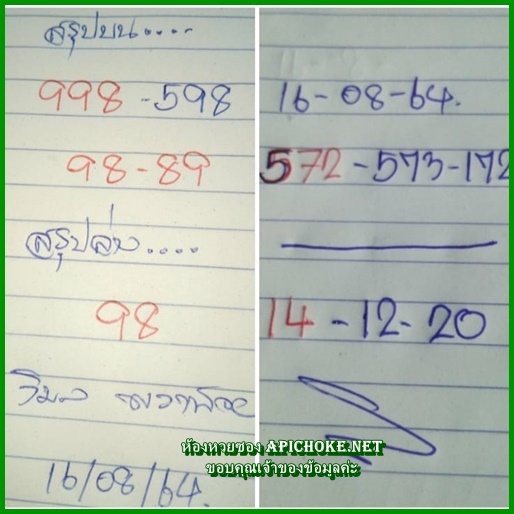 สรุปบน....
998-598
98-89
สรุปล่าง....
98
วิมล
16/08/64.
16-08-64.
572-573-172
14-12-20
ห้องหวยซอง APICHOKE.NET
ขอบคุณเจ้าของข้อมูลค่ะ